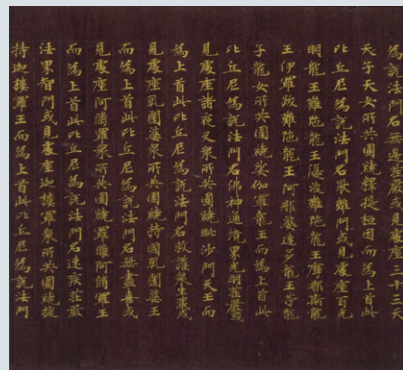 為說法門名無邊莊嚴或見處座三十三天
天子天女所共圍繞釋提桓因而為上首此
比丘尼為說法門名厭離門或見處座百光
明龍王難陀龍王優波難陀龍王摩那斯龍
王伊羅跋難陀龍王阿那婆達多龍王等龍
子龍女所共圍繞娑伽羅龍王而為上首此
比丘尼為說法門名佛神通境界光明莊嚴或
見處座諸夜叉眾所共圍繞毗沙門天王而
為上首此比丘尼為說法門名救護眾生藏或
見處座乾闥婆眾所共圍繞持國乾闥婆王
而為上首此比丘尼為說法門名無盡喜或
見處座阿脩羅眾所共圍繞羅睺阿脩羅王
而為上首此比丘尼為說法門名速疾莊嚴
法界智門或見處座迦樓羅眾所共圍繞捷
持迦樓羅王而為上首此比丘尼為說法門